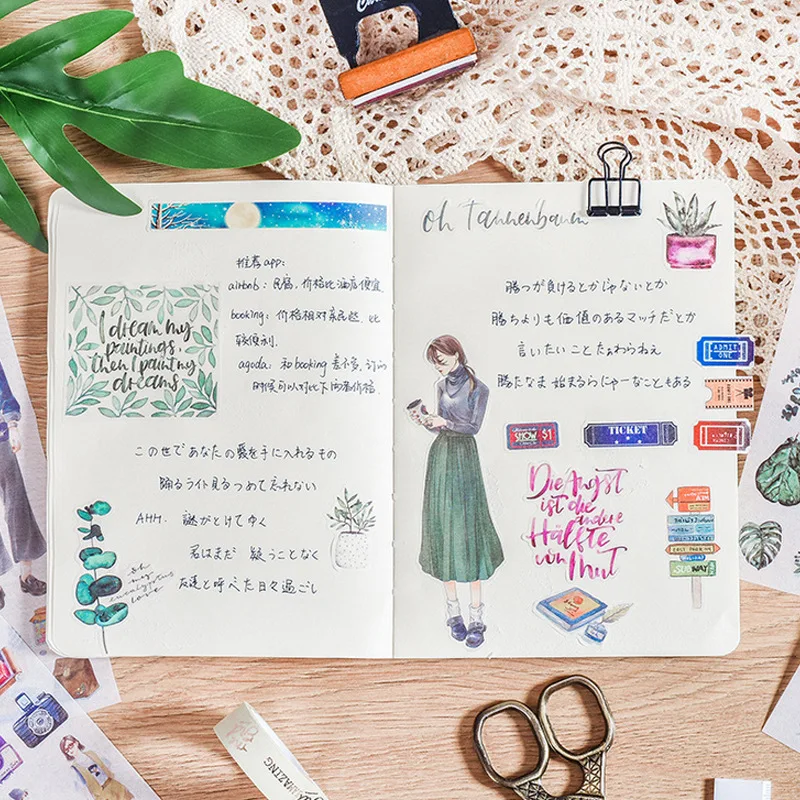 推荐app:
airbnb：民宿，价格比酒店便宜
booking：价格相对亲民些，比
较便利.
agoda：和booking差不多，订的
时候可以对比下两者价格.
I dream my
paintings,
then I paint my
dreams
この世であなたの愛を手に入れるもの
踊るライト見るつめて忘れない
AHH. 謎がとけてゆく
君はまだ 疑うことなく
友達と呼べた日々過ごし
oh
my
eucalyptus
love
oh Tannenbaum
勝つが負けるとかじゃないとか
勝ちよりも価値のあるマッチだとか
言いたいことたぁわらねぇ
勝たなま 始まるらにゃーなこともある
ADMIT
ONE
SHOW $1
TICKET
Die Angst
ist die
andere
Hälfte
von Mut
EAST PARK
SUBWAY
AMAZING